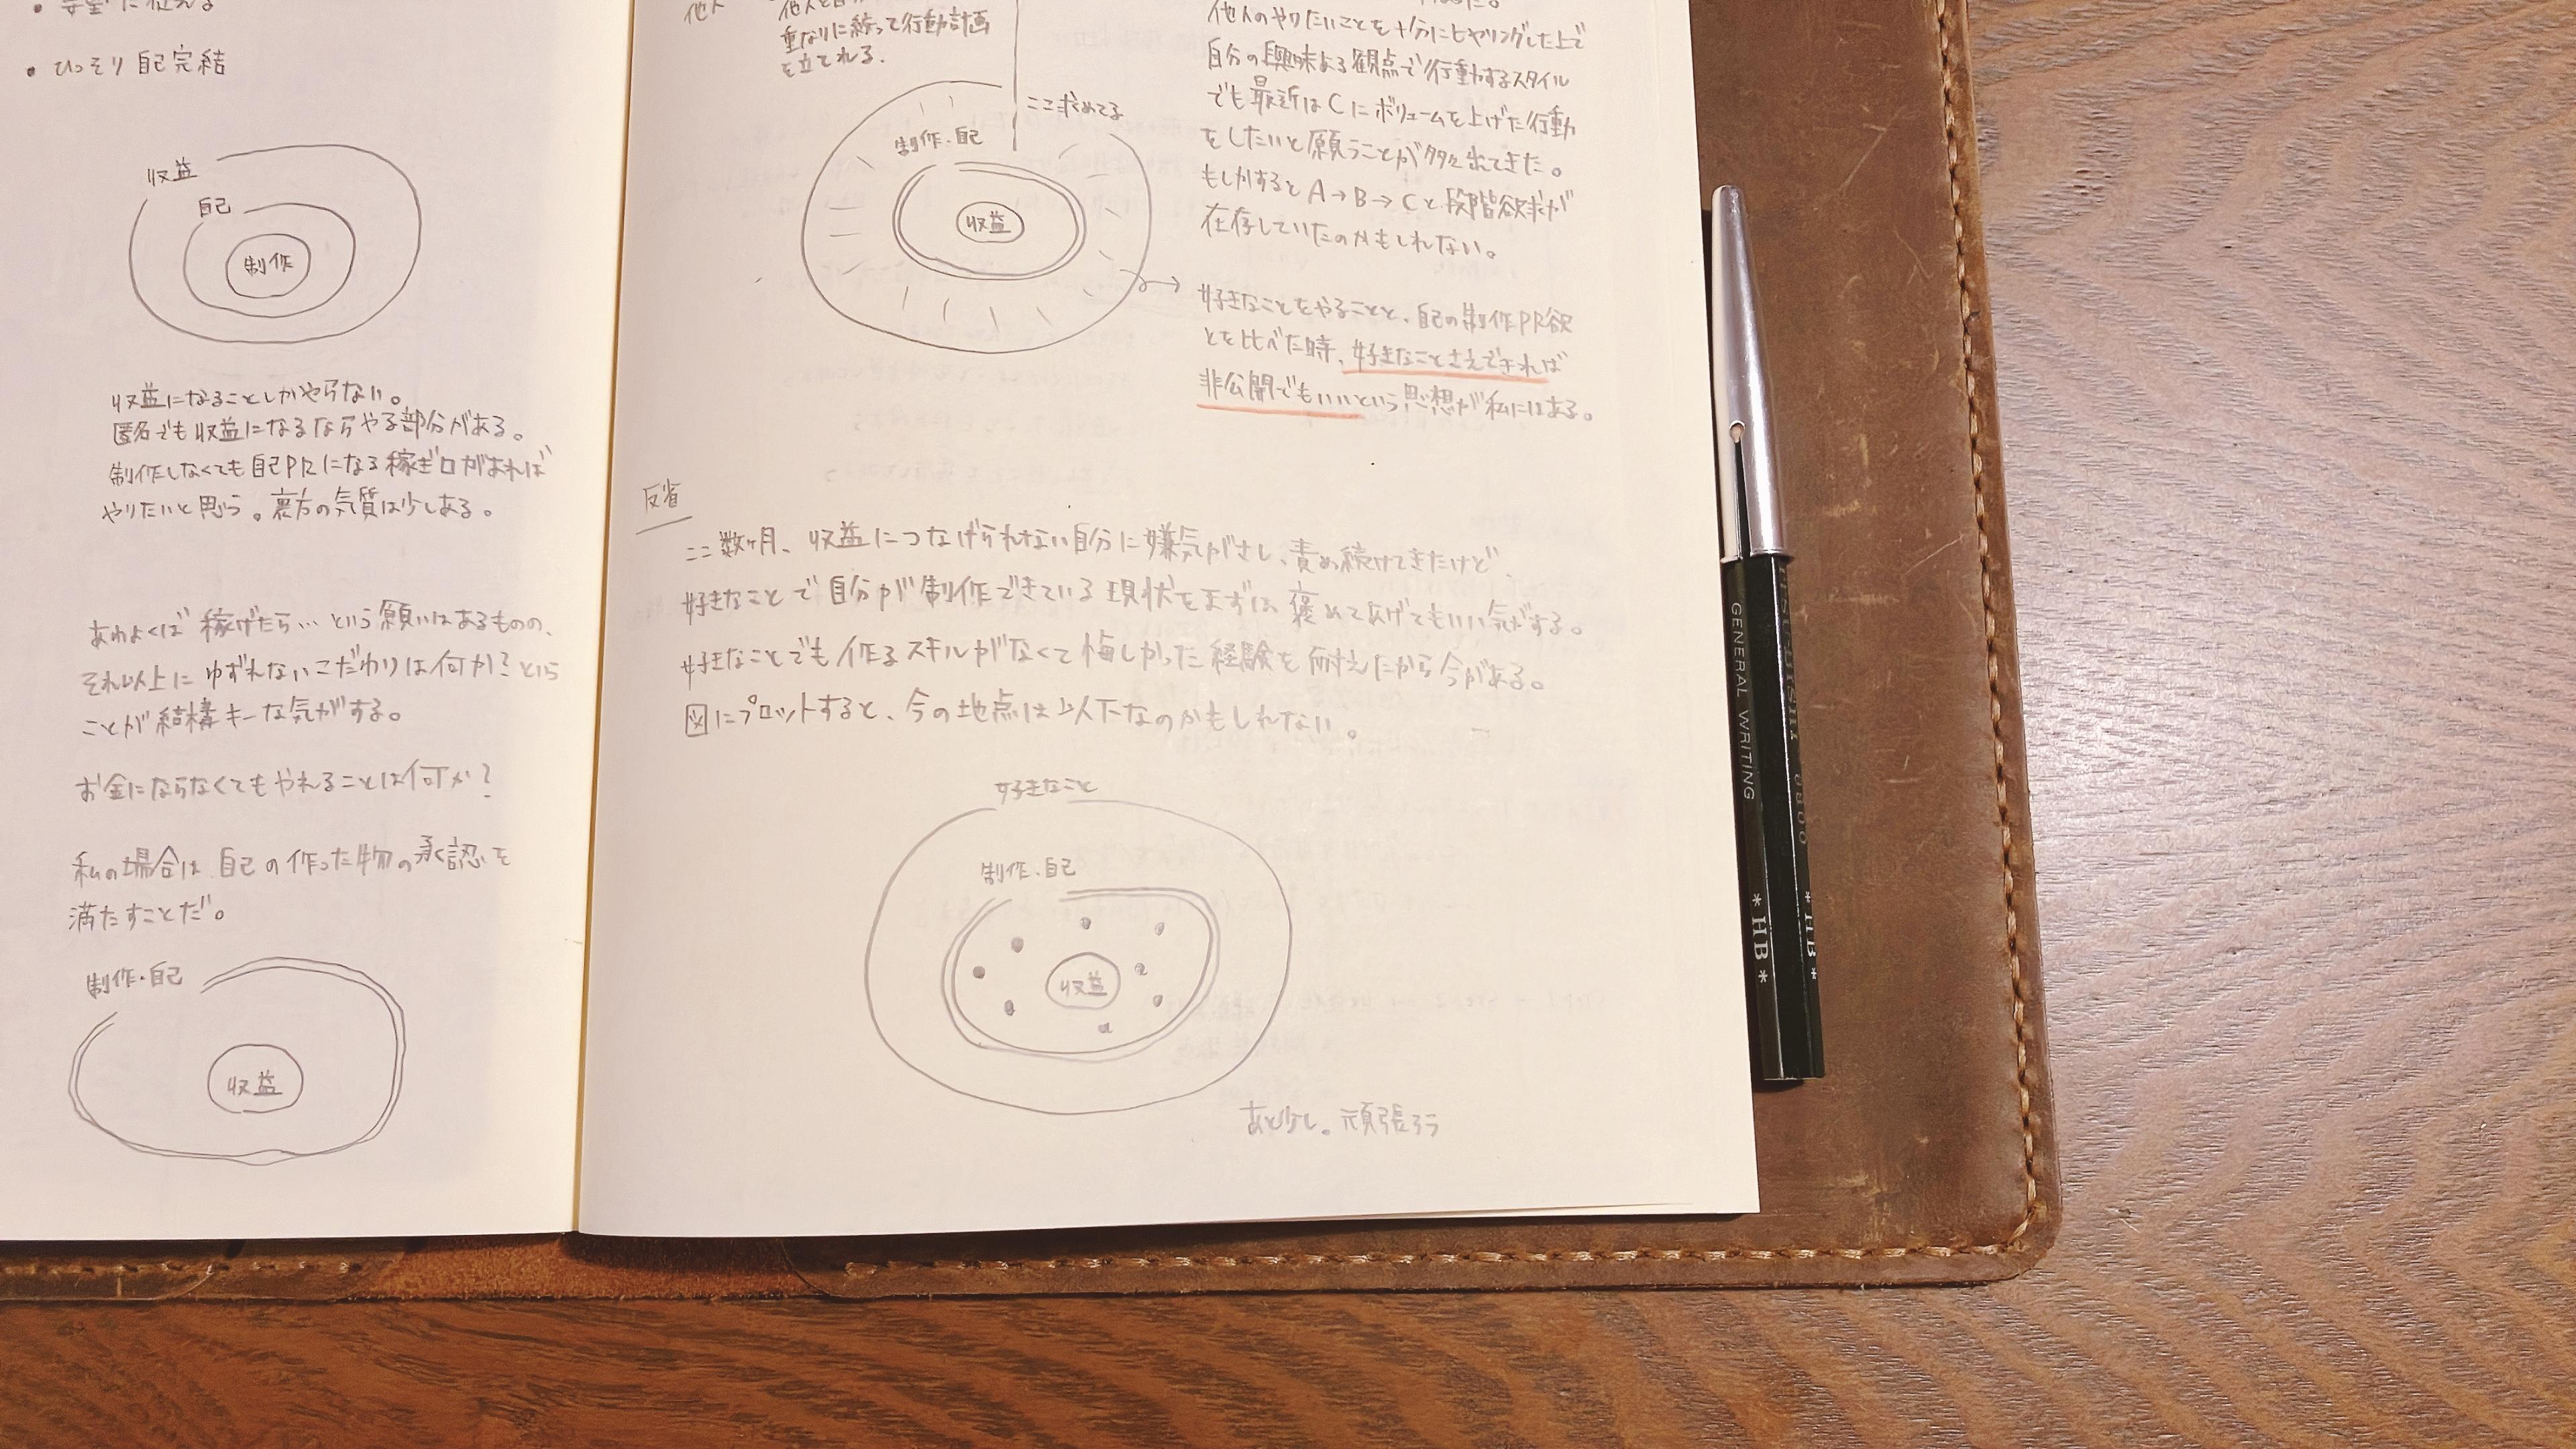 ひっそり自己完結
収益
自己
制作
収益になることしかやらない。
匿名でも収益になるならやる部分がある。
制作しなくても自己PRになる稼ぎ口があれば
やりたいと思う。裏方の気質は少しある。
あわよくば稼げたら…という願いはあるものの、
それ以上にゆずれないこだわりは何か?という
ことが結構キーな気がする。
お金にならなくてもやれることは何か?
私の場合は自己の作った物の承認を
満たすことだ。
制作・自己
収益
他人
重なりに絞って行動計画
を立てれる.
ここ求めてる
制作・自己
収益
他人のやりたいことを十分にヒヤリングした上で
自分の興味ある観点で行動するスタイル
でも最近はCにボリュームを上げた行動
をしたいと願うことが多々出てきた。
もしかするとA→B→Cと段階欲求が
在存していたのかもしれない。
→
好きなことをやることと、自己の制作PR欲
とを比べた時、好きなことさえできれば
非公開でもいいという思想が私にはある。
反省
ここ数ヶ月、収益につなげられない自分に嫌気がさし、責め続けてきたけど
好きなことで自分が制作できている現状をまずは褒めてあげてもいい気がする。
好きなことでも作るスキルがなくて悔しかった経験を耐えたから今がある。
図にプロットすると、今の地点は以下なのかもしれない。
好きなこと
制作・自己
収益
あと少し。頑張ろう
GENERAL WRITING
*HB*
*HB*